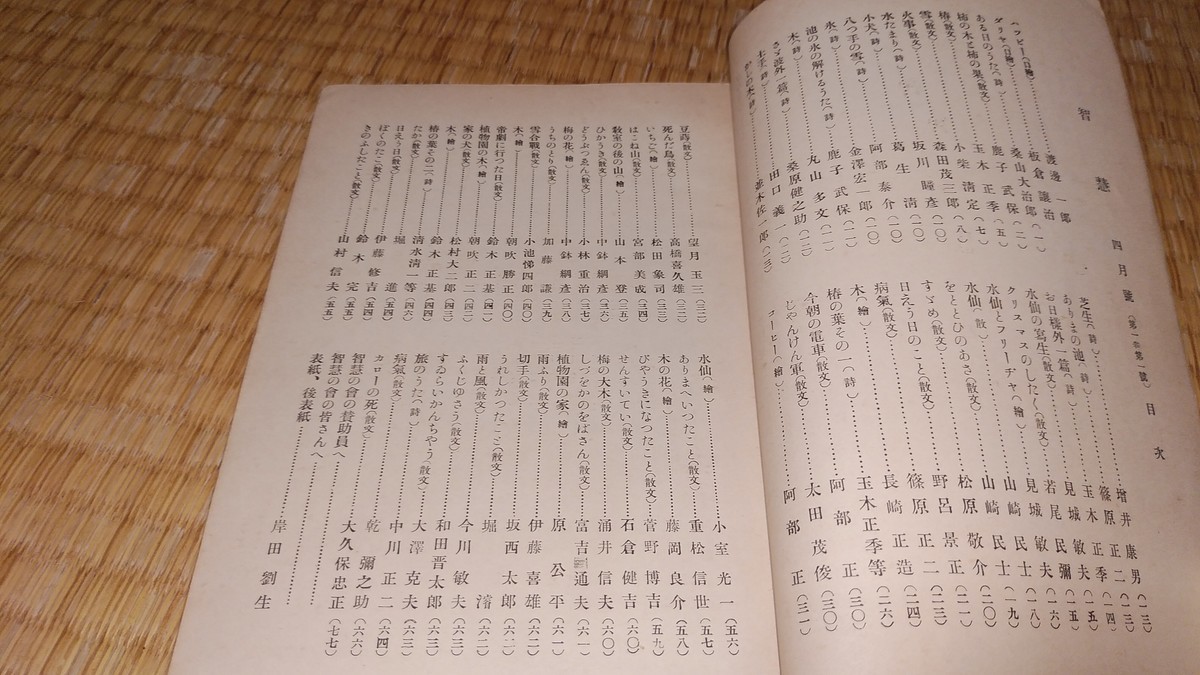 智慧
四月號(第一卷第一號)目次
ハッピー(口繪)……渡邊一郎
ダリヤ(口繪)……板倉讓治(一)
ある日のうた(詩)……桑山大治郎(二)
柿の木と柿の果(散文)……鹿子武保(五)
椿(散文)……玉木正季(七)
雪(散文)……小柴清定(八)
火事(散文)……森田茂三郎(一〇)
水たまり(詩)……坂川瞳彥(一〇)
小犬(詩)……葛生清(一〇)
八つ手の雪(詩)……阿部泰介(一〇)
氷(詩)……金澤宏一郎(一一)
池の氷の解けるうた(詩)……鹿子武保(一一)
木(詩)……丸山多文(一二)
さゞ波外一篇(詩)……桑原健之助(一二)
土手(詩)……田口義一(一二)
かしの木(詩)……並木佐一郎(一三)
芝生(詩)……增井康男(一三)
ありまの池(詩)……篠原正二(一四)
お日樣外一篇(詩)……玉木正季(一五)
水仙の寫生(散文)……見城敏彌(一五)
クリスマスのしたく(散文)……若尾敏夫(一六)
水仙とフリーヂャ(繪)……見城民士(一八)
水仙(散)……山崎民士(一九)
をとゝひのあさ(散文)……山崎敬介(二〇)
すゞめ(散文)……松原景正(二一)
日えう日のこと(散文)……野呂正二(二三)
病氣(散文)……篠原正造(二四)
木(繪)……長崎正造(二六)
椿の葉その一(詩)……玉木正季等(三〇)
今朝の電車(散文)……阿部正(三〇)
じゃんけん軍(散文)……太田茂俊(三〇)
コーヒー(繪)……阿部正(三一)
豆蒔(散文)……望月玉三(三二)
死んだ鳥(散文)……高橋喜久雄(三二)
いちご(繪)……松田象司(三三)
はこね山(散文)……宮部美成(三四)
敎室の後の山(繪)……山本登(三五)
ひかうき(散文)……中鉢綱彥(三六)
どうぶつゑん(散文)……小林重治(三七)
梅の花(繪)……中鉢綱彥(三八)
うちのとり(散文)……加藤謙(三九)
雪合戰(散文)……小池悌四郎(四〇)
木(繪)……朝吹勝正(四〇)
帝劇に行つた日(散文)……鈴木正基(四一)
植物園の木(繪)……朝吹正二(四二)
家の犬(散文)……松村大二郎(四三)
木(繪)……鈴木正基(四四)
椿の葉その二(詩)……清水清一等(四六)
たか(散文)……堀進(五一)
日えう日(散文)……伊藤修吉(五四)
ぼくのたこ(散文)……鈴木完(五四)
きのふしたこと(散文)……山村信夫(五五)
水仙(繪)……小室光一(五六)
ありまへいつたこと(散文)……重松信世(五七)
木の花(繪)……藤岡良介(五八)
びやうきになつたこと(散文)……菅野博吉(五九)
せんすいてい(散文)……石倉健吉(六〇)
梅の大木(散文)……涌井信夫(六〇)
しづをかのをばさん(散文)……富吉通夫(六一)
植物園の家(繪)……原公平(六一)
雨ふり(散文)……伊藤喜雄(六一)
切手(散文)……坂西太郎(六二)
うれしかつたこと(散文)……堀濬(六二)
雨と風(散文)……今川敏夫(六三)
ふくじゆさう(散文)……和田晋太郎(六三)
すゐらいかんちやう(散文)……大澤克夫(六三)
旅のうた(詩)……中川正二(六四)
病氣(散文)……乾彌之助(六六)
カローの死(散文)……大久保忠正(七七)
智慧の會の贊助員へ
智慧の會の皆さんへ
表紙、後表紙……岸田劉生